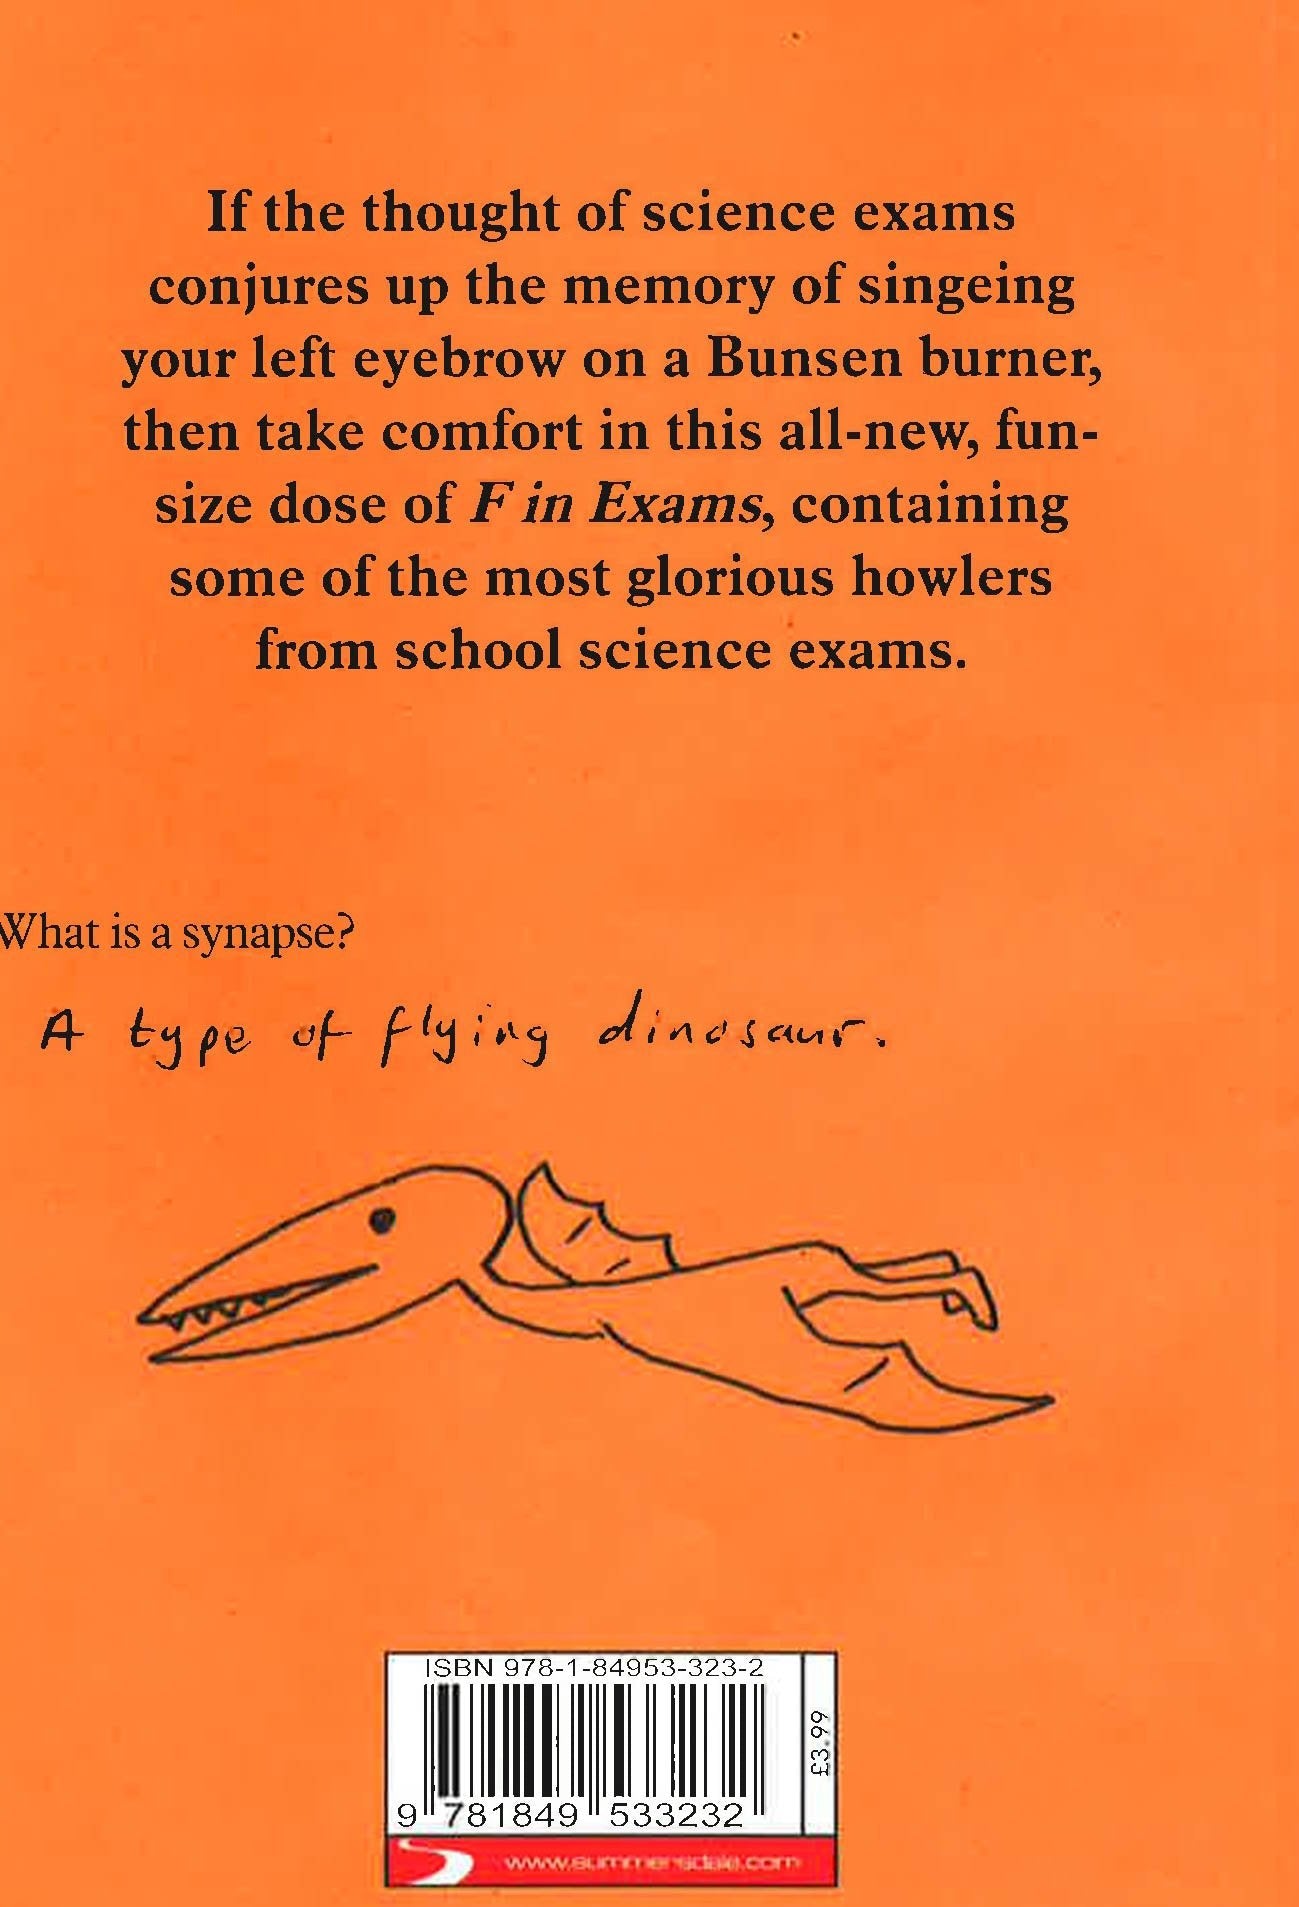 If the thought of science exams
conjures up the memory of singeing
your left eyebrow on a Bunsen burner,
then take comfort in this all-new, fun-
size dose of F in Exams, containing
some of the most glorious howlers
from school science exams.
What is a synapse?
A type of flying dinosaur.
ISBN 978-1-84953-323-2
£3.99
9 781849 533232
www.summersdale.com